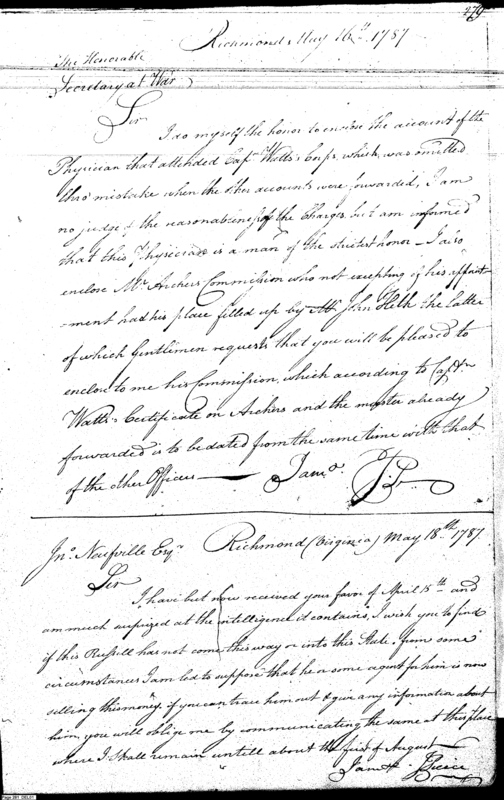 479
Richmond May 16th. 1787
The Honorable
Secretary at War
Sir
I do myself the honor to enclose the account of the
Physician that attended Capt. Watts's Corps, which was omitted
thro' mistake when the other accounts were forwarded, I am
no judge of the reasonableness of the Charges, but am informed
that this Physician is a man of the strictest honor — I also
enclose Mr. Archers Commission who not excepting of his appoint
-ment had his place filled up by Mr. John Heth the latter
of which Gentlemen requests that you will be pleased to
enclose to me his Commission, which according to Captn
Watts's Certificate on Archers and the muster already
forwarded is to be dated from the same time with that
of the other Officers — I am &. J.P.
Jno. Neufville Esqr. Richmond (Virginia) May 18th. 1787.
Sir
I have but now received your favor of April 15th and
am much surprized at the intelligence it contains, I wish you to find
if this Russell has not come this way or into this State, from some
circumstances I am led to suppose that he or some agent for him is now
selling this money, if you can trace him out & give any information about
him, you will oblige me by communicating the same at this place
where I shall remain untill about the first of August —
I am &. J Pierce